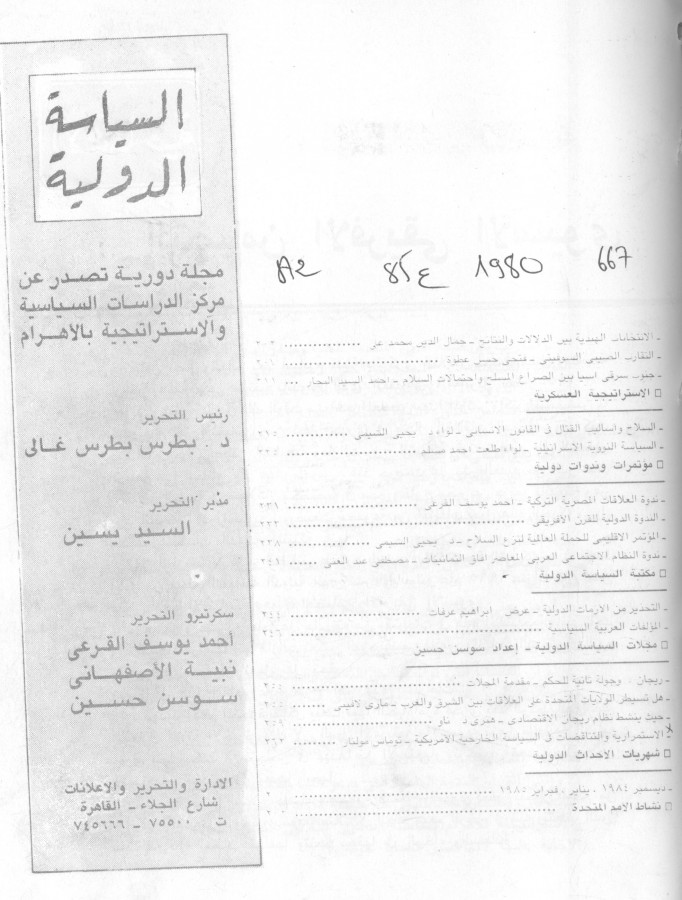 السياسة
الدولية
مجلة دورية تصدر عن
مركز الدراسات السياسية
والاستراتيجية بالأهرام
رئيس التحرير
د . بطرس بطرس غالى
مدير التحرير
السيد يسين
سكرتيرو التحرير
أحمد يوسف القرعى
نبية الأصفهانى
سوسن حسين
الادارة والتحرير والإعلانات
شارع الجلاء ـ القاهرة
ت ٧٥٥٠٠ ـ ٧٤٥٦٦٦
A2 85ع 1980 667
ـ الانتخابات الهندية بين الدلالات والنتائج ـ جمال الدين محمد على
ـ التقارب الصينى السوفيتى ـ فتحى حسن عطوة
ـ جنوب شرقى آسيا بين الصراع المسلح واحتمالات السلام ـ احمد السيد النجار
□ الاستراتيجية العسكرية
ـ السلاح واساليب القتال فى القانون الانسانى ـ لواء د . يحيى الشيمى ٢١٥
ـ السياسة النووية الاسرائيلية ـ لواء طلعت احمد مسلم
□ مؤتمرات وندوات دولية
ـ ندوة العلاقات المصرية التركية ـ احمد يوسف القرعى ٢٣١
ـ الندوة الدولية للقرن الافريقى
ـ المؤتمر الاقليمى للحملة العالمية لنزع السلاح ـ د . يحيى الشيمى ٢٣٨
ـ ندوة النظام الاجتماعى العربى المعاصر افاق الثمانينات ـ مصطفى عبد العمى ٢٤١
□ مكتبة السياسة الدولية
ـ التحذير من الازمات الدولية ـ عرض : ابراهيم عرفات ٢٤٤
ـ المؤلفات العربية السياسية ٢٤٦
□ مجلات السياسة الدولية ـ إعداد سوسن حسين
ـ ريجان : وجولة ثانية للحكم ـ مقدمة المجلات
ـ هل تسيطر الولايات المتحدة على العلاقات بين الشرق والغرب ـ مارى لافينى
ـ حيث ينشط نظام ريجان الاقتصادى ـ هنرى د . ناو ٢٥٩
ـ الاستمرارية والتناقضات فى السياسة الخارجية الامريكية ـ توماس مولنار ٢٦٢
□ شهريات الاحداث الدولية
ـ ديسمبر ١٩٨٤ ، يناير ، فبراير ١٩٨٥
□ نشاط الامم المتحدة